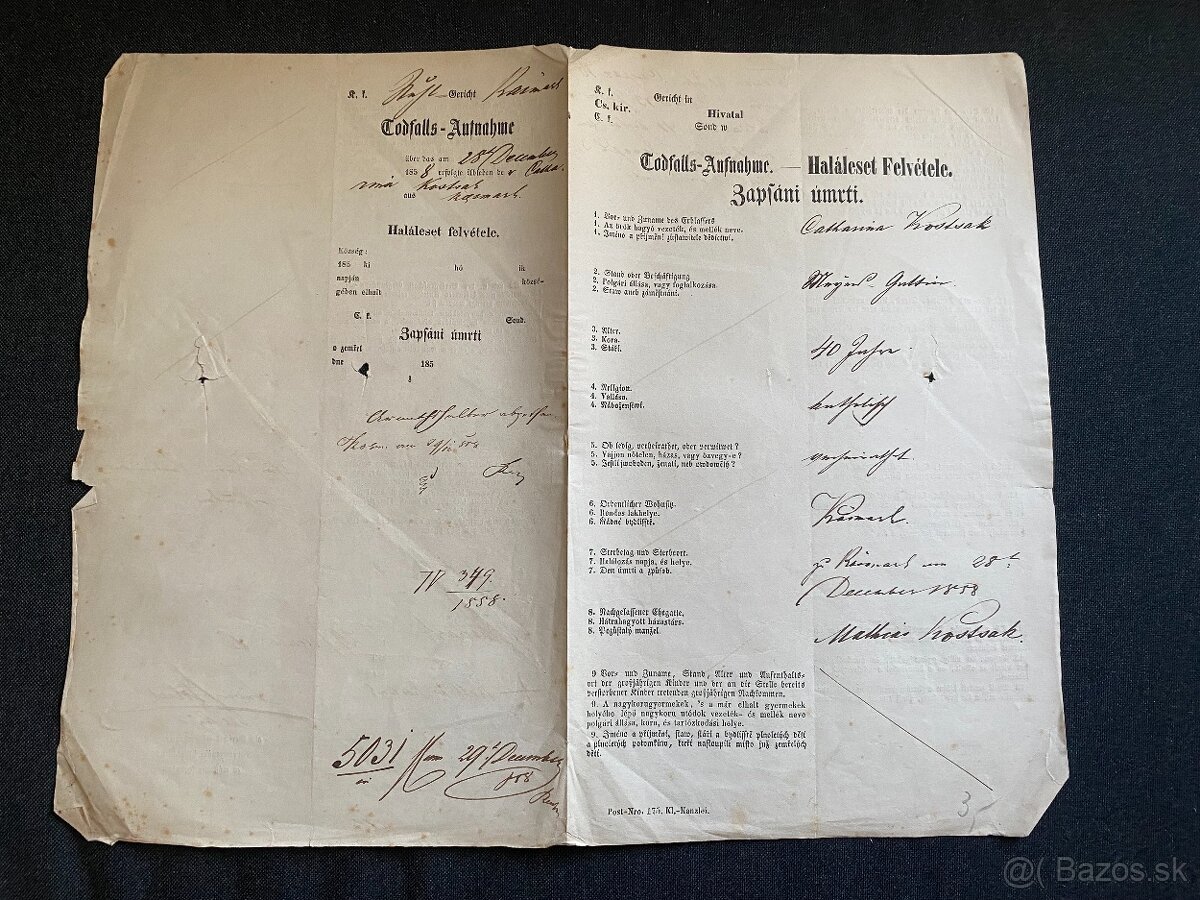 K. k. Gericht
Todfalls-Aufnahme
über das am 28t December
185 8 erfolgte Ableben de r Catha-
rina Kostsak
aus Käsmark.
Haláleset felvétele.
Község:
185 ki hó ik
napján közsé-
gében elhalt
C. k. Soud.
Zapsáni úmrti
o zemřel
dne 185
Armuthshalber
IV 349
1858.
5031
am 29t December
858
K. k. Gericht in
Cs. kir. Hivatal
C. k. Soud w
Todfalls-Aufnahme. — Haláleset Felvétele.
Zapsáni úmrti.
1. Vor- und Zuname des Erblassers
1. Az örök hagyó vezeték, és mellék neve.
1. Jméno a příjmění zůstawitele dědictwí.
Catharina Kostsak
2. Stand oder Beschäftigung
2. Polgári állása, vagy foglalkozása.
2. Staw aneb zaměstnání.
Gattin.
3. Alter.
3. Kora.
3. Stáří.
40 Jahre.
4. Religion.
4. Vallása.
4. Náboženstwí.
katholisch
5. Ob ledig, verheirathet, oder verwitwet?
5. Vajjon nőtelen, házas, vagy özvegy-e?
5. Jestli swoboden, ženatí, neb owdowělý?
verheirathet
6. Ordentlicher Wohnsitz.
6. Rendes lakhelye.
6. Řádné bydliště.
Käsmark.
7. Sterbetag und Sterbeort.
7. Halálozás napja, és helye.
7. Den úmrti a způsob.
zu Käsmark am 28t
December 1858
8. Nachgelassener Ehegatte.
8. Hátrahagyott házastárs.
8. Pozůstalý manžel.
Mathias Kostsak
9 Vor- und Zuname, Stand, Alter und Aufenthalts-
ort der großjährigen Kinder und der an die Stelle bereits
verstorbener Kinder tretenden großjährigen Nachkommen.
9. A nagykorugyermekek, 's a már elhalt gyermekek
helyébe lépő nagykoru utódok vezeték- és mellék neve
polgári állása, kora, és tartózkodási helye.
9. Jméno a příjmění, staw, stáří a bydliště plnoletých dětí
a plnoletých potomkůw, kteří nastoupili místo již zemřelých
dětí.
Post-Nro. 175. Kl,-Kanzlei.
3
@( Bazoš.sk